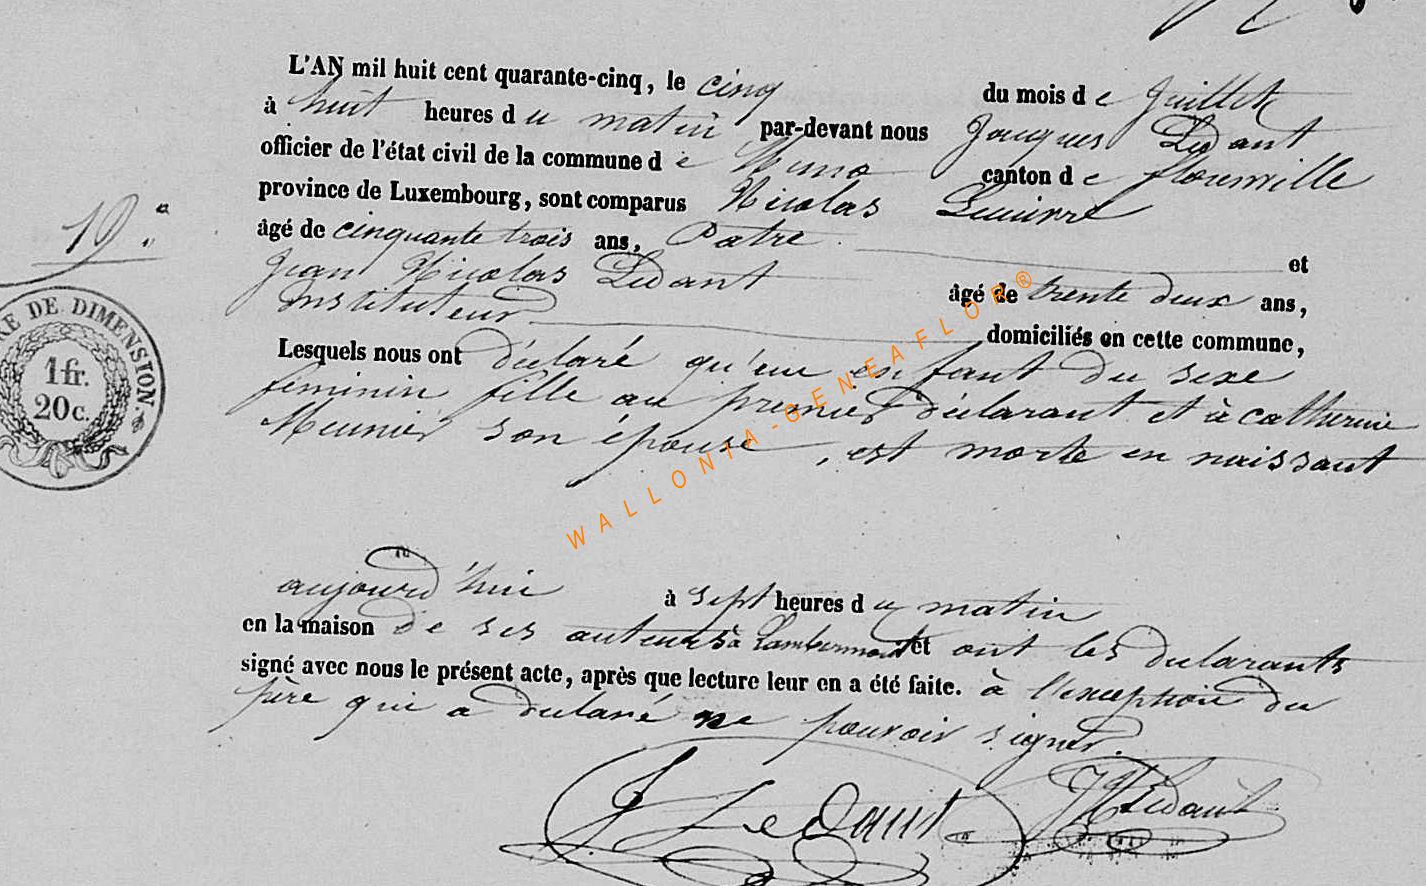 L'AN mil huit cent quarante-cinq, le cinq du mois de Juillet
à huit heures du matin par-devant nous Jacques Ledant
officier de l'état civil de la commune de Muno canton de florenville
province de Luxembourg, sont comparus Nicolas
âgé de cinquante trois ans, Patre et
Jean Nicolas Ledant âgé de trente deux ans,
instituteur domiciliés en cette commune,
Lesquels nous ont déclaré qu'un enfant du sexe
feminin fille au premier déclarant et à catherine
Meunier son épouse, est morte en naissant
aujourd'hui à sept heures du matin
en la maison de ses auteurs à Lambermont et ont les declarants
signé avec nous le présent acte, après que lecture leur en a été faite. à l'exception du
père qui a declaré ne pouvoir signer.
J Ledant JN Ledant
19.
RE DE DIMENSION.
1 fr.
20 c.
WALLONIA-GENEAFLOR®